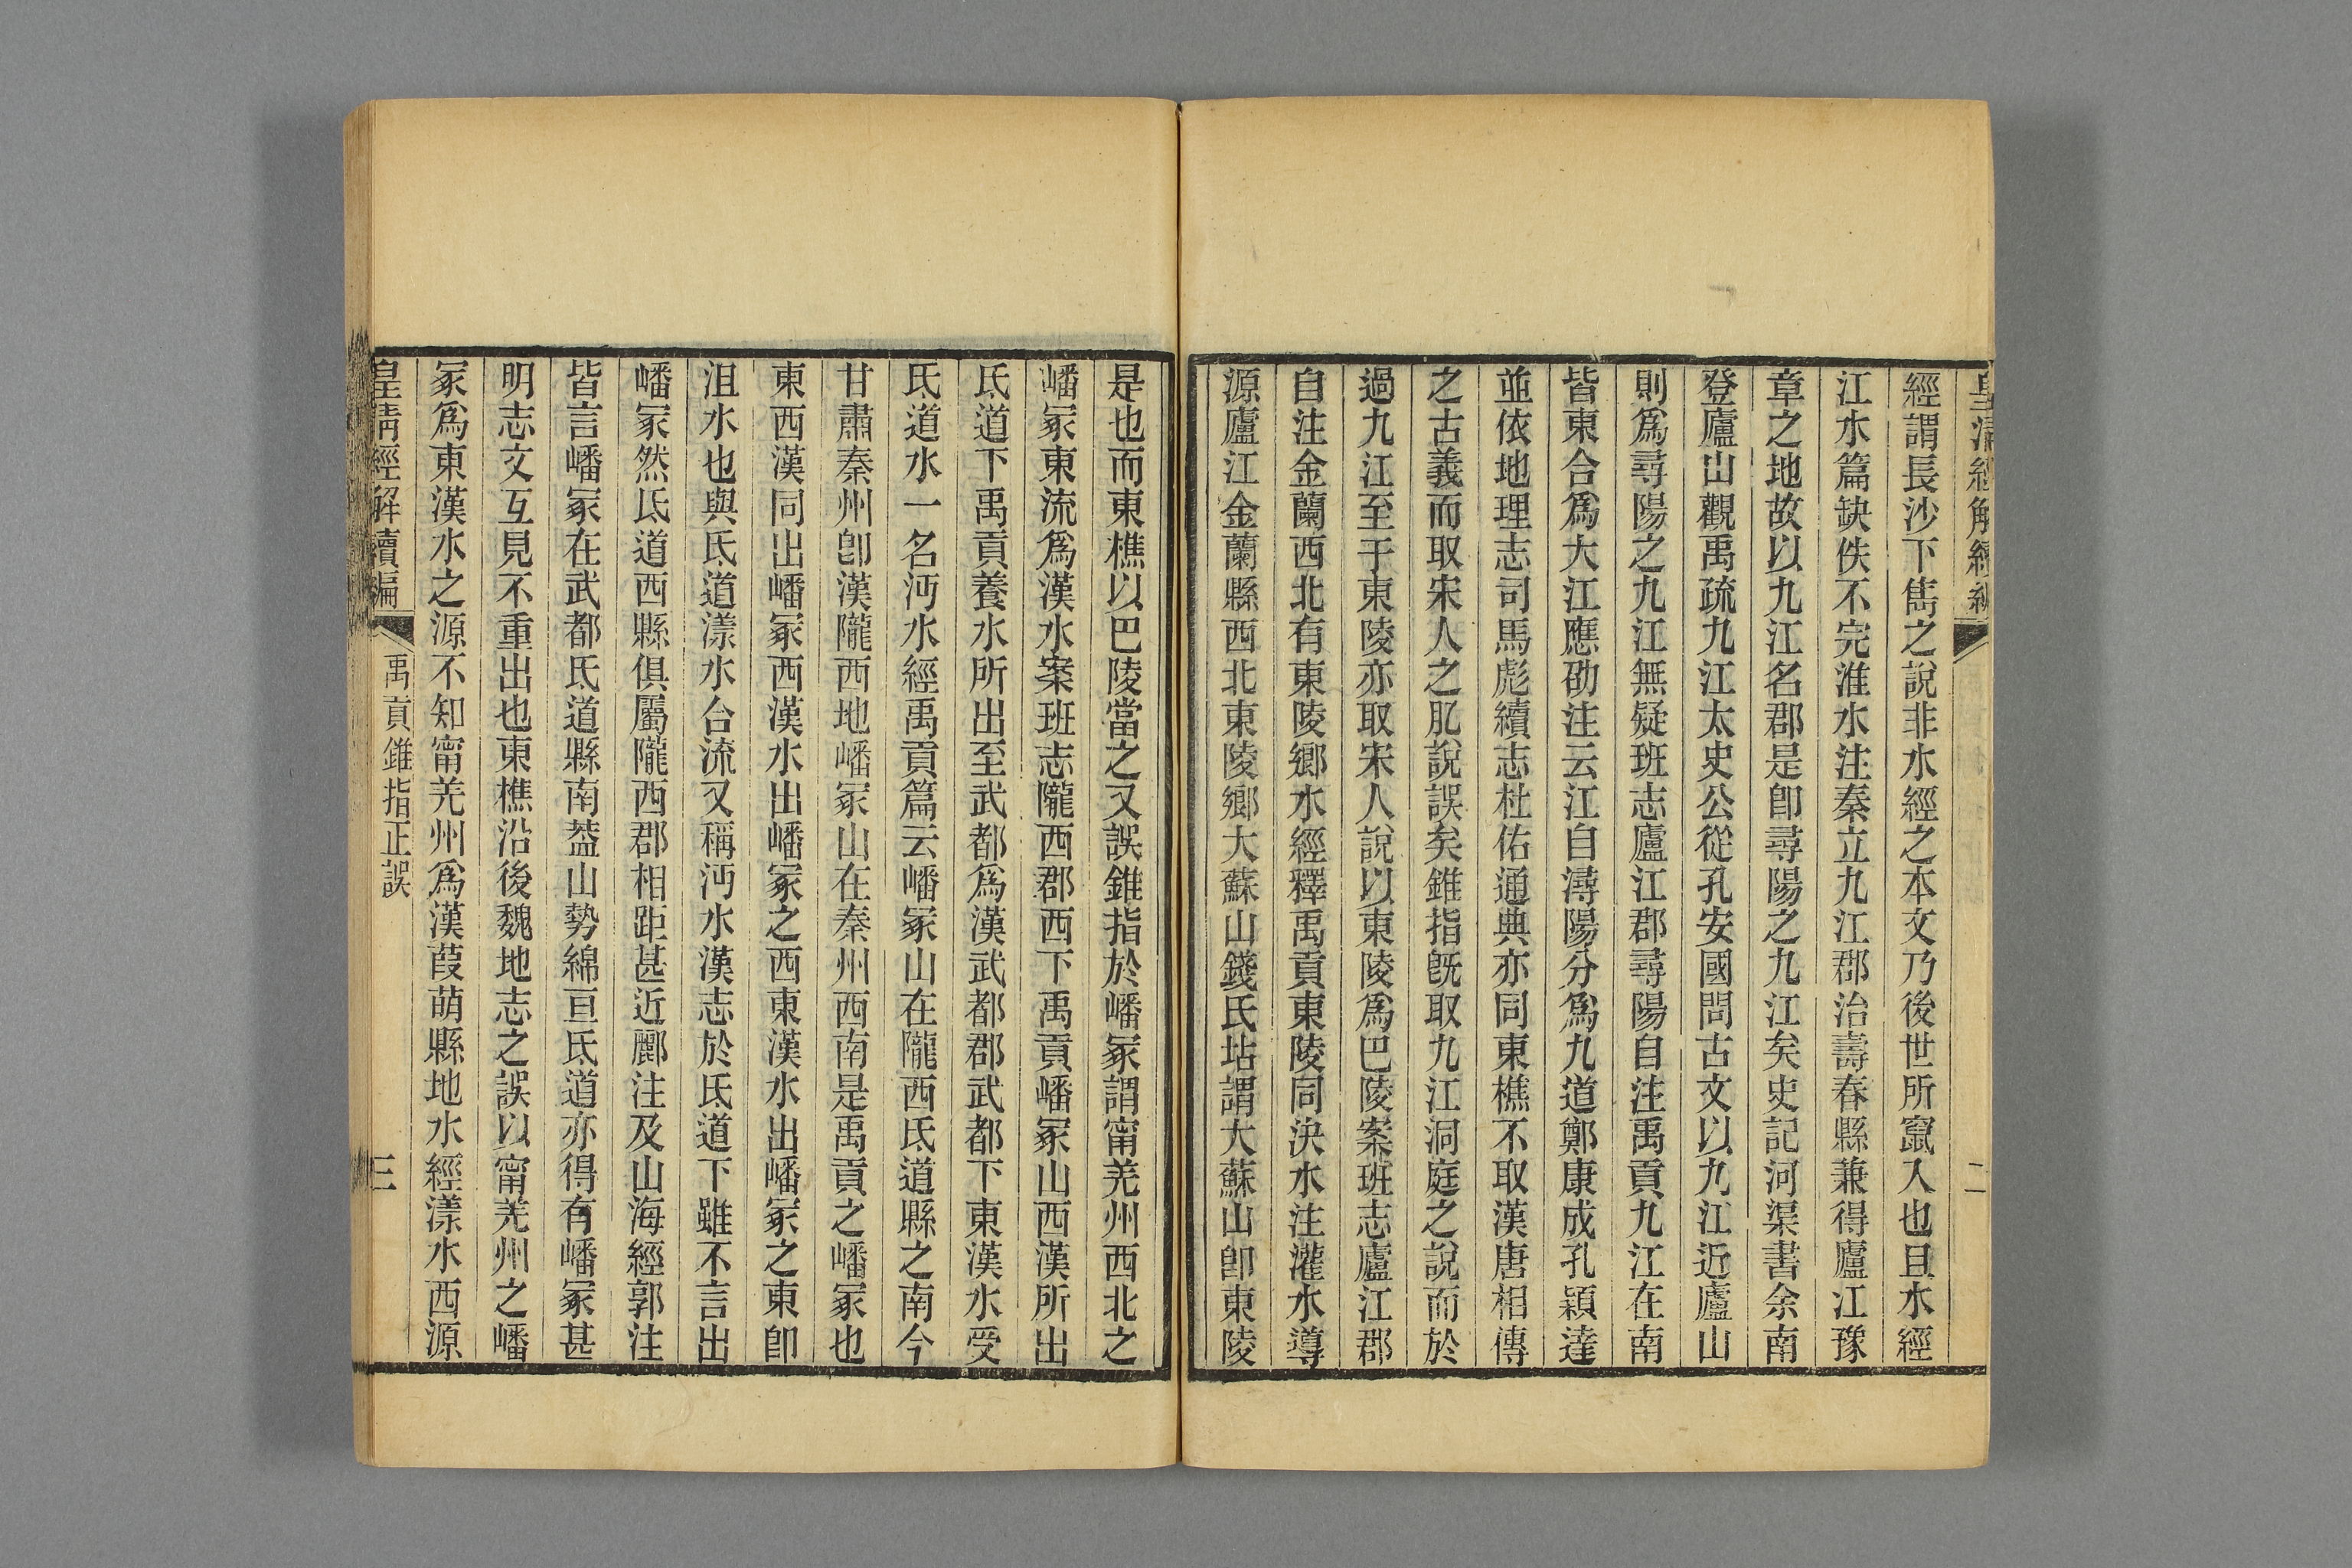 皇清經解續編
二
經謂長沙下雋之說非水經之本文乃後世所竄入也且水經
江水篇缺佚不完淮水注秦立九江郡治壽春縣兼得廬江豫
章之地故以九江名郡是卽尋陽之九江矣史記河渠書余南
登廬山觀禹疏九江太史公從孔安國問古文以九江近廬山
則爲尋陽之九江無疑班志廬江郡尋陽自注禹貢九江在南
皆東合爲大江應劭注云江自潯陽分爲九道鄭康成孔穎達
並依地理志司馬彪續志杜佑通典亦同東樵不取漢唐相傳
之古義而取宋人之肊說誤矣錐指旣取九江洞庭之說而於
過九江至于東陵亦取宋人說以東陵爲巴陵案班志廬江郡
自注金蘭西北有東陵鄉水經釋禹貢東陵同決水注灌水導
源廬江金蘭縣西北東陵鄉大蘇山錢氏坫謂大蘇山卽東陵
是也而東樵以巴陵當之又誤錐指於嶓冢謂甯羌州西北之
嶓冢東流爲漢水案班志隴西郡西下禹貢嶓冢山西漢所出
氐道下禹貢養水所出至武都爲漢武都郡武都下東漢水受
氐道水一名沔水經禹貢篇云嶓冢山在隴西氐道縣之南今
甘肅秦州卽漢隴西地嶓冢山在秦州西南是禹貢之嶓冢也
東西漢同出嶓冢西漢水出嶓冢之西東漢水出嶓冢之東卽
沮水也與氐道漾水合流又稱沔水漢志於氐道下雖不言出
嶓冢然氐道西縣俱屬隴西郡相距甚近酈注及山海經郭注
皆言嶓冢在武都氐道縣南葢山勢綿亘氐道亦得有嶓冢甚
明志文互見不重出也東樵沿後魏地志之誤以甯羌州之嶓
冢爲東漢水之源不知甯羌州爲漢葭萌縣地水經漾水西源
皇清經解續編
禹貢錐指正誤
三